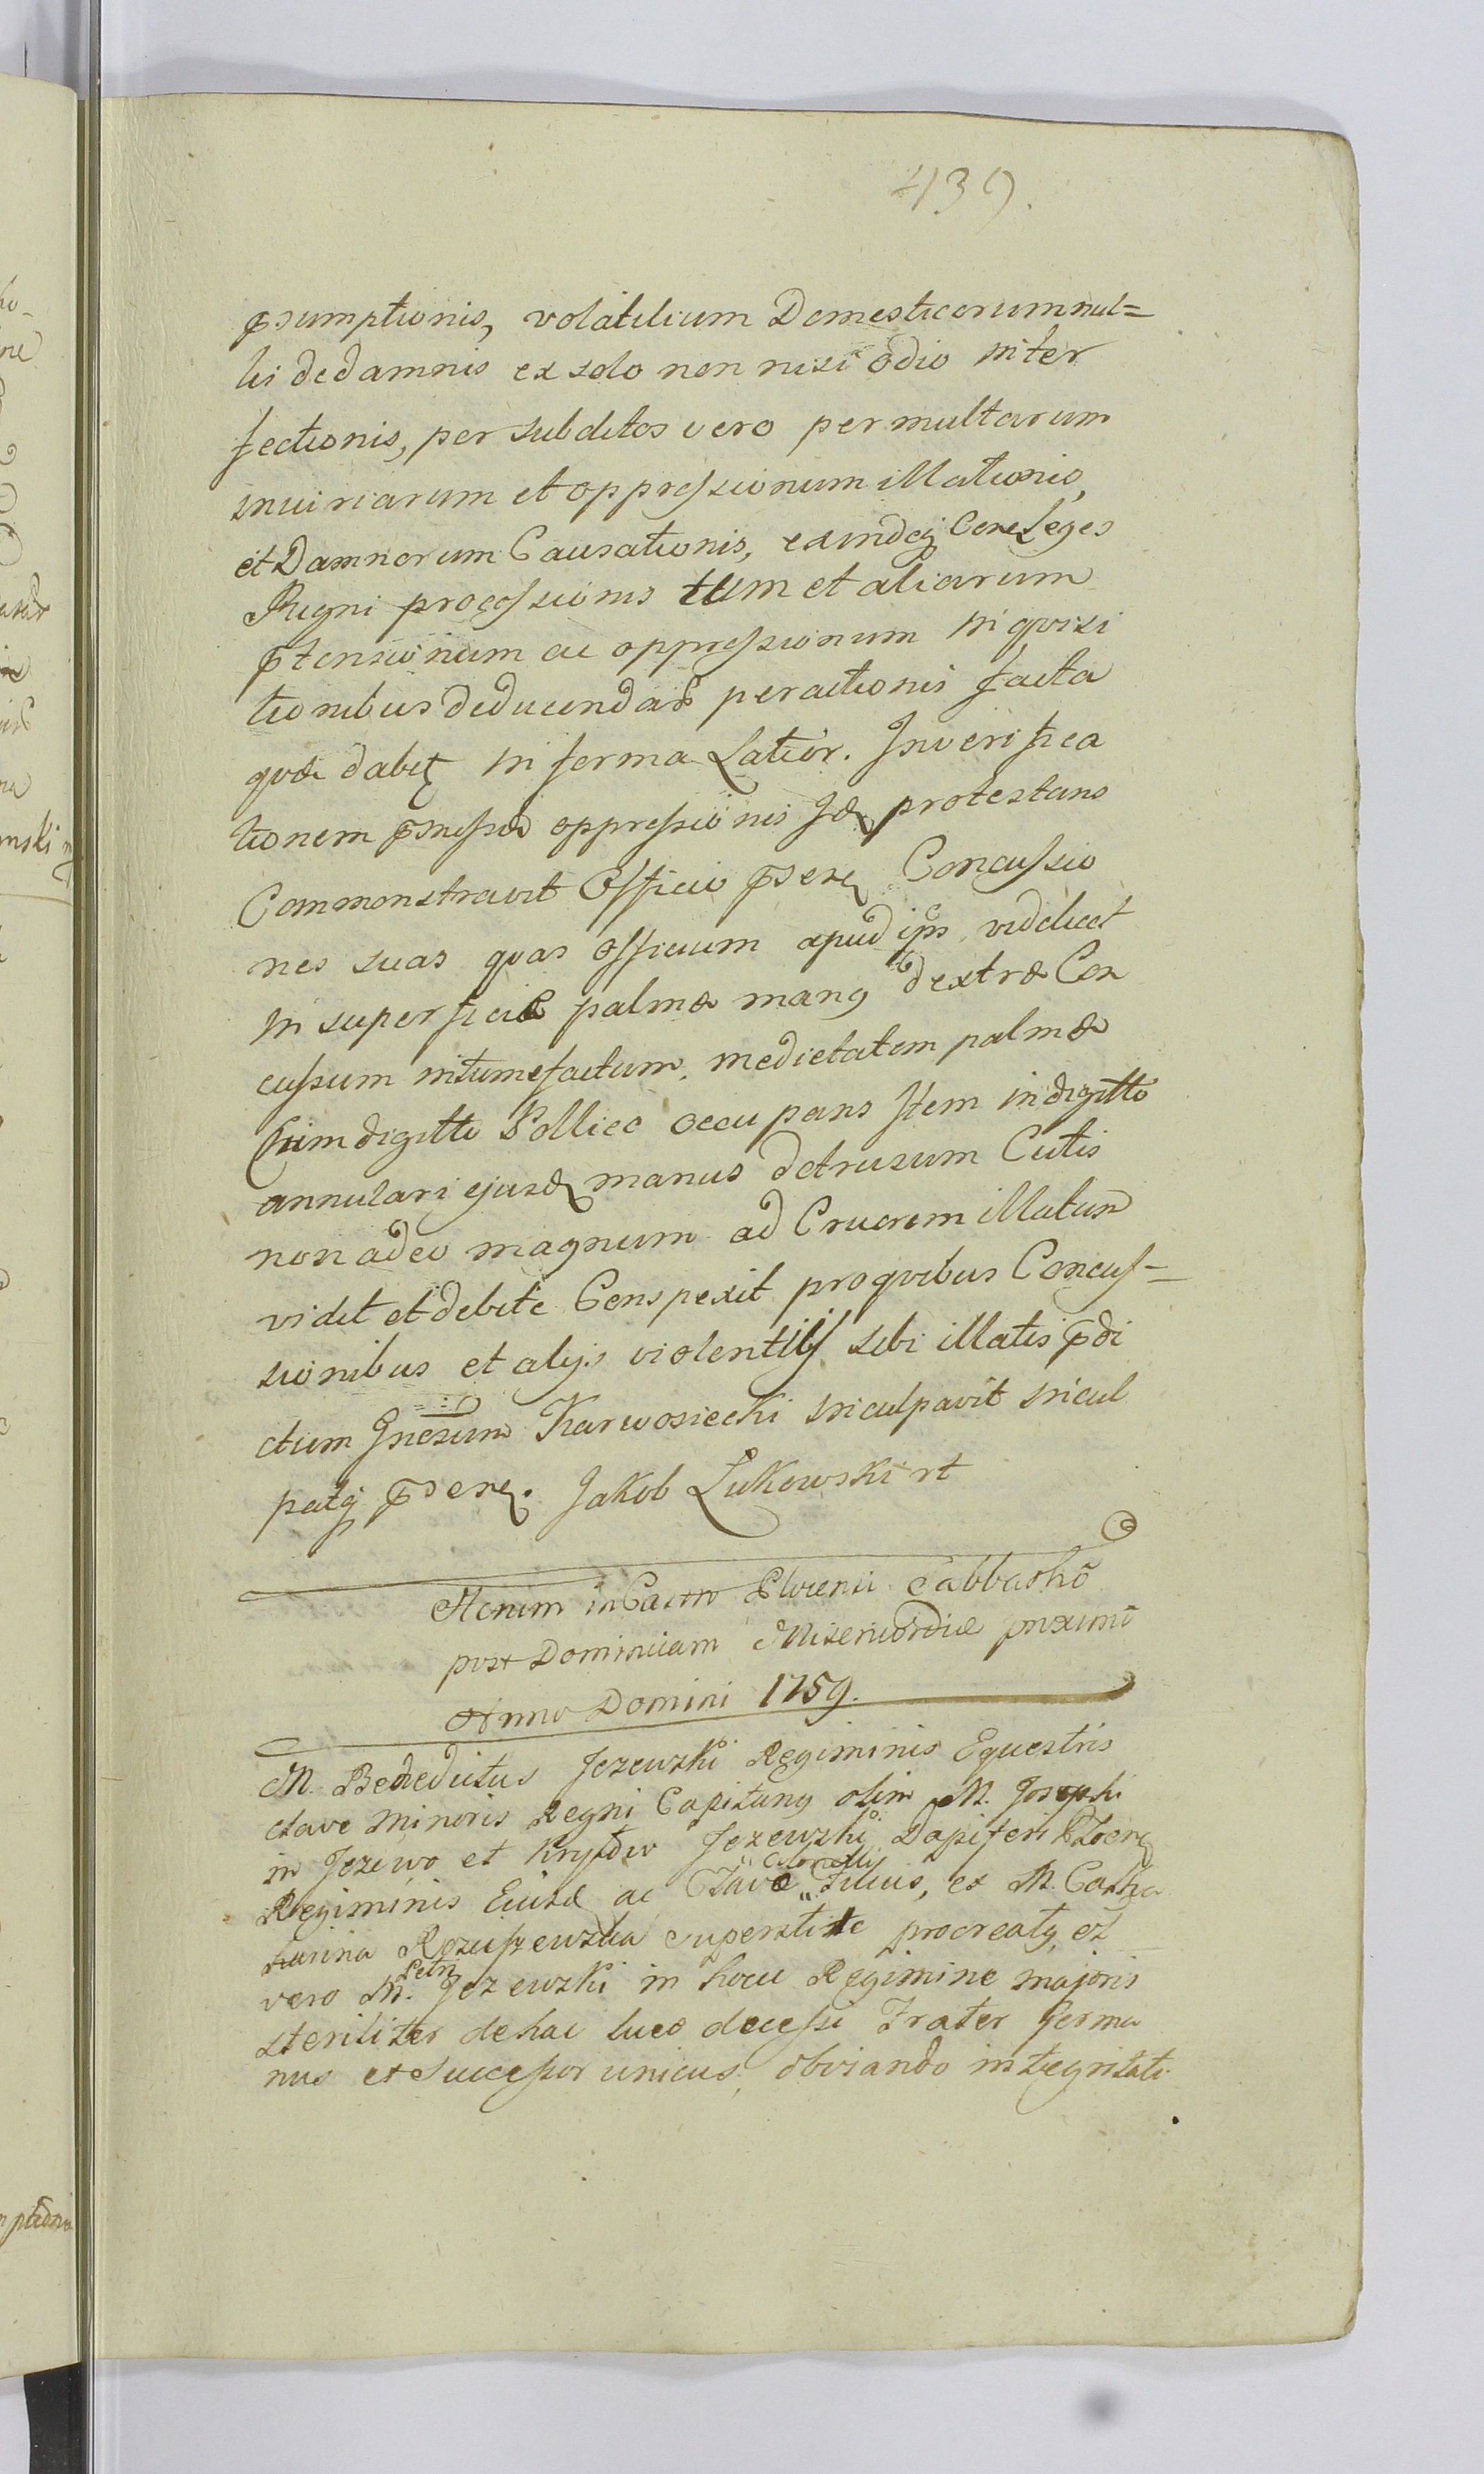 439.
p̄sumptionis, volatilium Domesticorum nul=
lis de damnis ex solo non nisi odio inter
fectionis, per subditos vero permultarum
iniuriarum et oppressionum illationis,
et Damnorum Causationis, eaindeq Con Leges
Regni processionis tum et aliarum
p̄tensionum ac oppressionum inquisi
tionibus deducendar peractionis facta
quæ dabit in forma Latior. In verifica
tionem p̄missæ oppressionis Id protestans
Commonstravit Officio p̄sen Concussio
nes suas quas officium apud ip̄m videlicet
in superficie palmæ manq dextræ Con
cussum intumefactum, medietatem palmæ
Cum digitto Pollice occupans Item in digitto
annulari ejusd manus detrusum Cutis
non adeo magnum ad Cruorem illatum
vidit et debite Conspexit pro quibus Concus=
sionibus et alijs violentijs sibi illatis p̄di
ctum Gnēsum Karwosiecki inculpavit incul
patq p̄sen. Jakob Lukowski rt
Actum in Castro Plocensi Sabbatho
post Dominicam Misericordiæ proximo
Anno Domini 1759.
M. Benedictus Jezewski Regiminis Equestris
clavæ Minoris Regni Capitanq olim M. Josephi
in Jezewo et Jezewski Dapiferi Plocen
Regiminis Eiusd ac Clavæ Colonelli Filius, ex M. Catha
harina Rosciszewska superstite procreatq, et
vero M. Petri Jezewski in hocce Regimine majoris
steriliter de hac luce decessi Frater Germa
nus et Successor unicus, obviando integritati